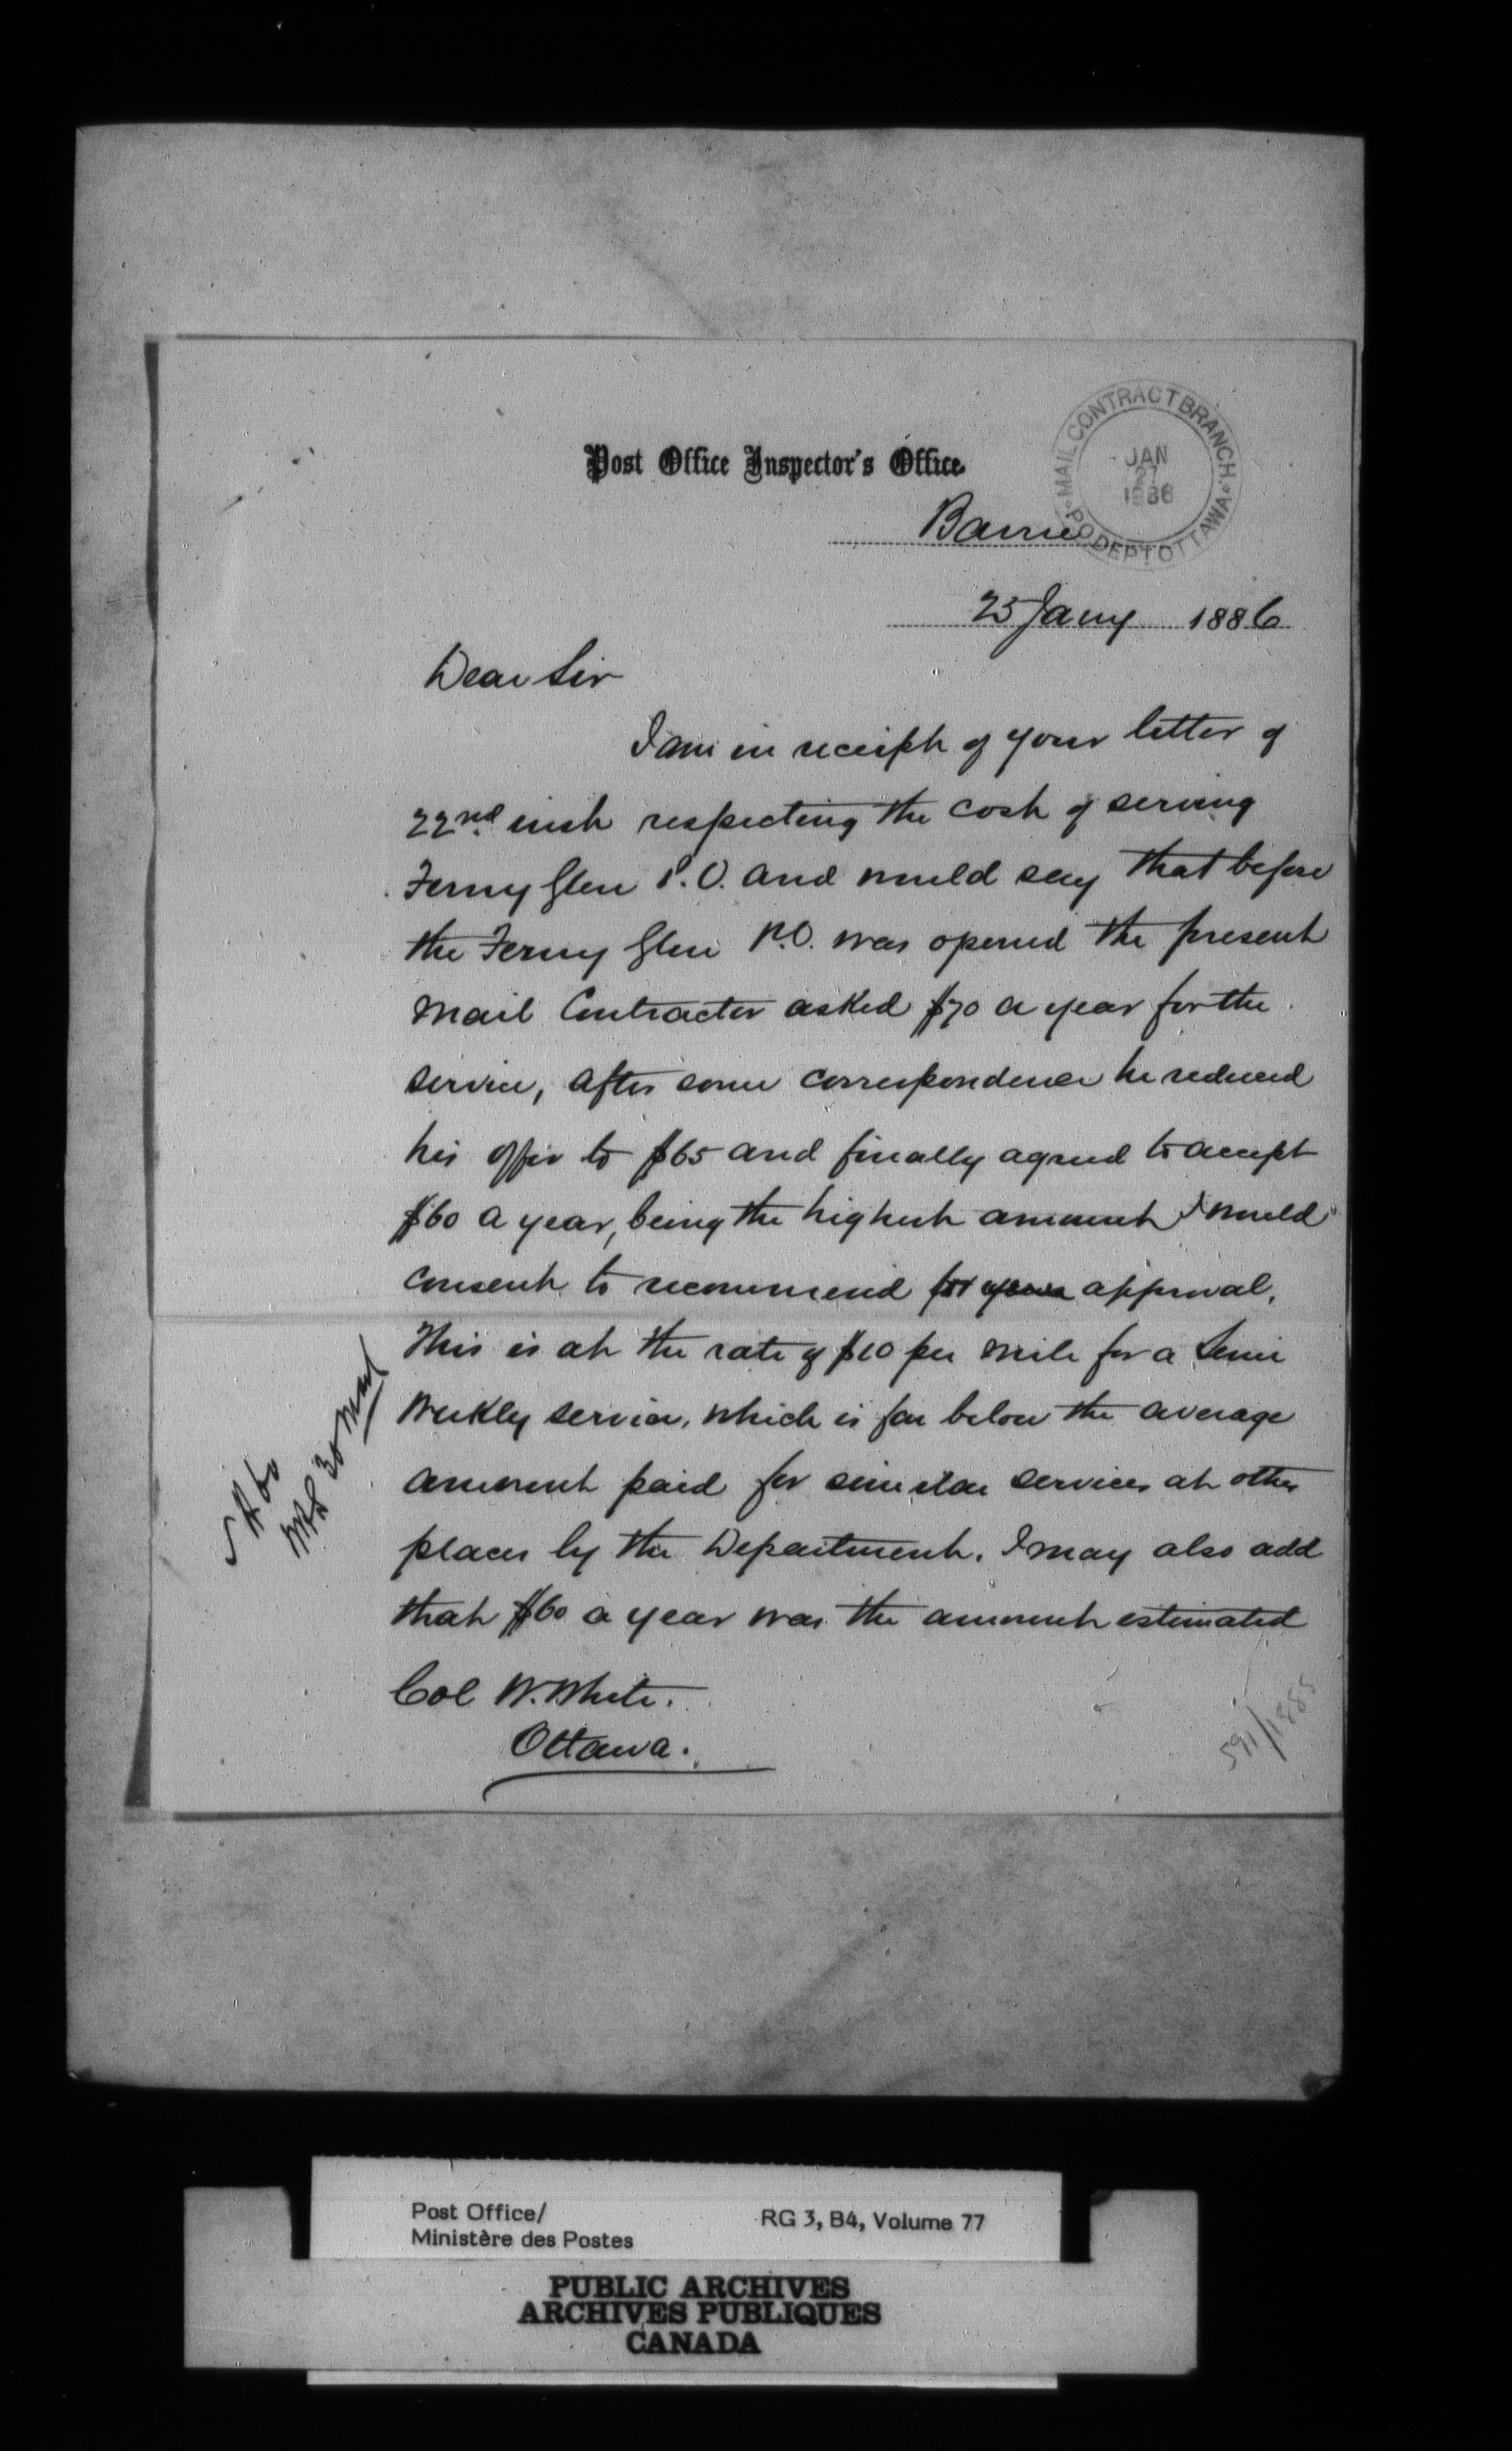 Post Office Inspector's Office
MAIL CONTRACT BRANCH. P.O. DEPT OTTAWA
JAN
27
1886
Barrie
25 Jany 1886
Dear Sir
I am in receipt of your letter of
22nd inst respecting the cost of serving
Ferny Glen P.O. and would say that before
the Ferny Glen P.O. was opened the present
Mail Contractor asked $70 a year for the
service, after some correspondence he reduced
his offer to $65 and finally agreed to accept
$60 a year, being the highest amount I would
consent to recommend for your approval.
This is at the rate of $10 per mile for a Semi
Weekly service, which is far below the average
amount paid for similar services at other
places by the Department. I may also add
that $60 a year was the amount estimated
Col W. White.
Ottawa.
591/1885
Post Office/
Ministère des Postes
RG 3, B4, Volume 77
PUBLIC ARCHIVES
ARCHIVES PUBLIQUES
CANADA